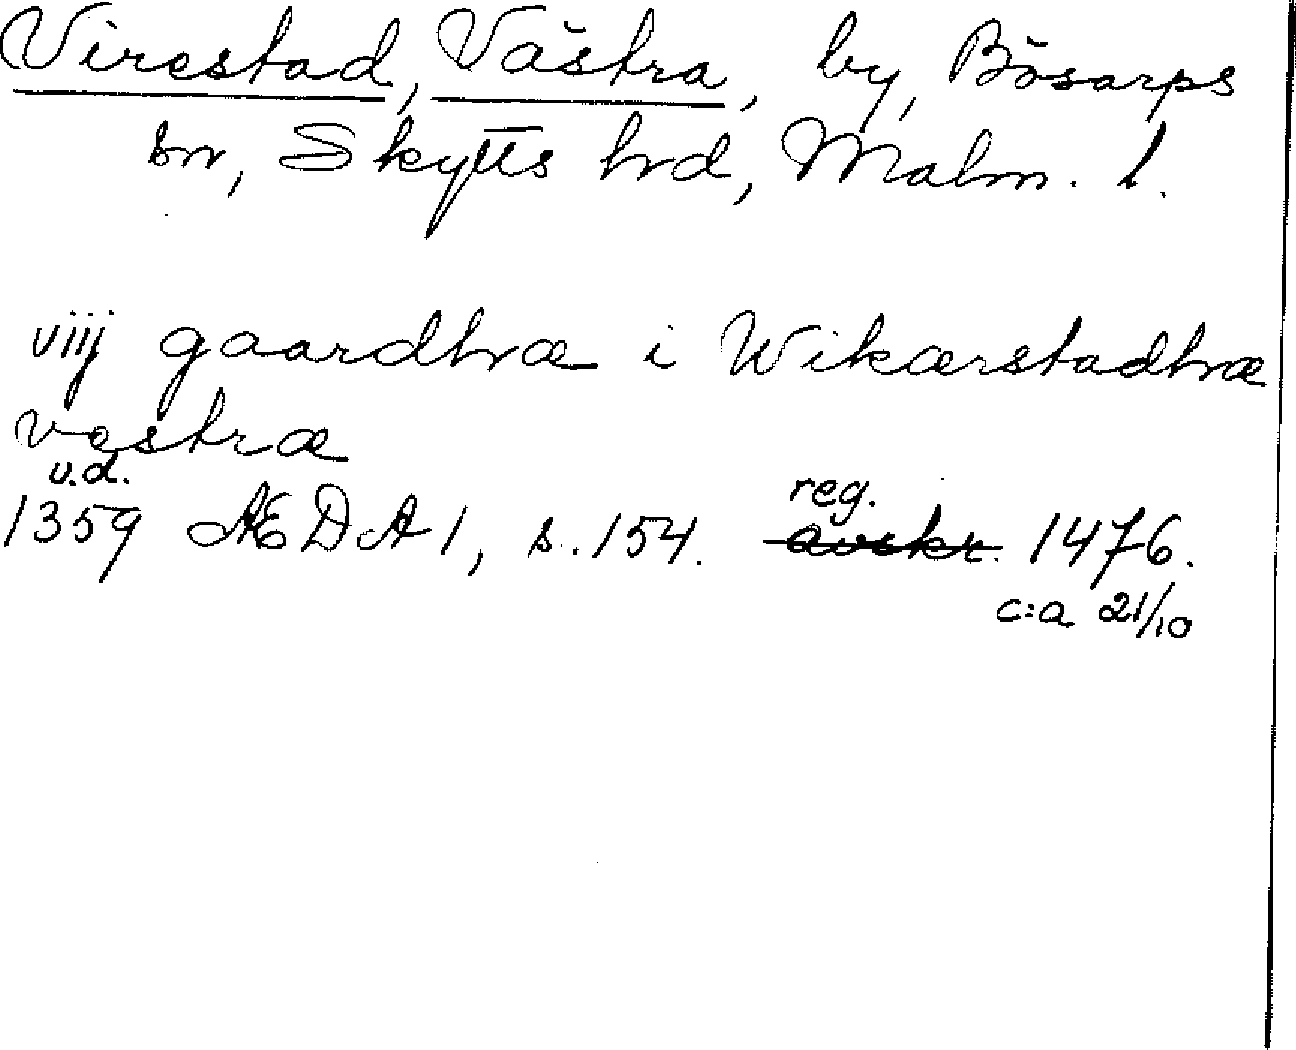 Virestad, Västra, by, Bösarps
sn, Skytts hrd, Malm. l.
viij gaardhræ i Wikærstadhræ
vestræ
u.d.
reg.
1359 ÆDA 1, s. 154. avskr. 1476.
c:a 21/10